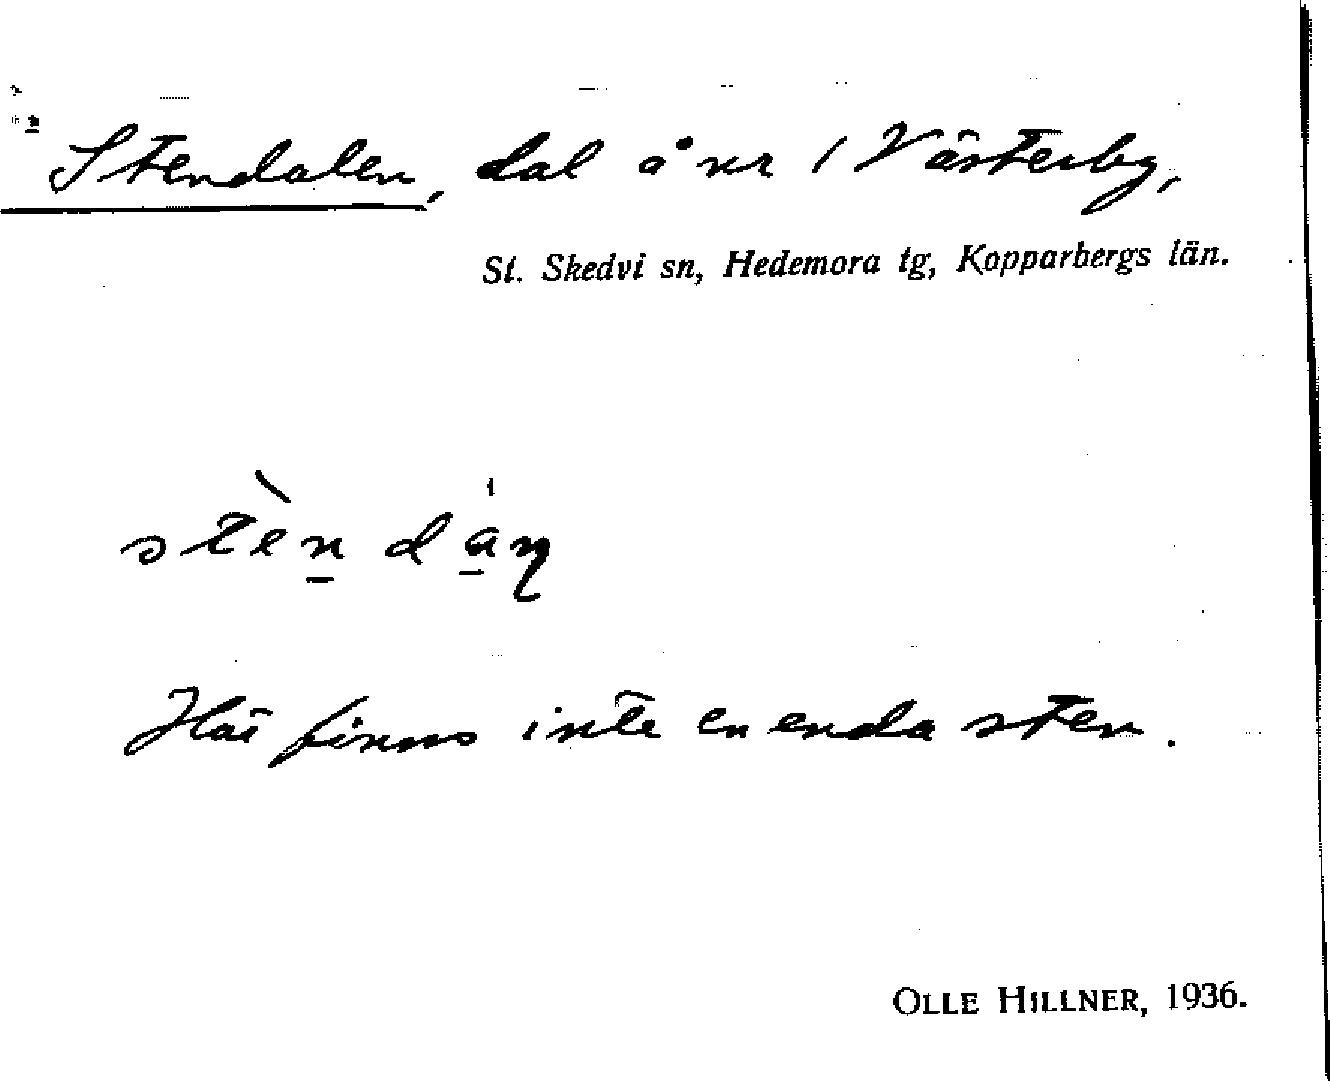 Stendalen, dal å nr 1 Västerby,
St. Skedvi sn, Hedemora tg, Kopparbergs län.
stèn dáɳ
Här finns inte en enda sten.
OLLE HILLNER, 1936.